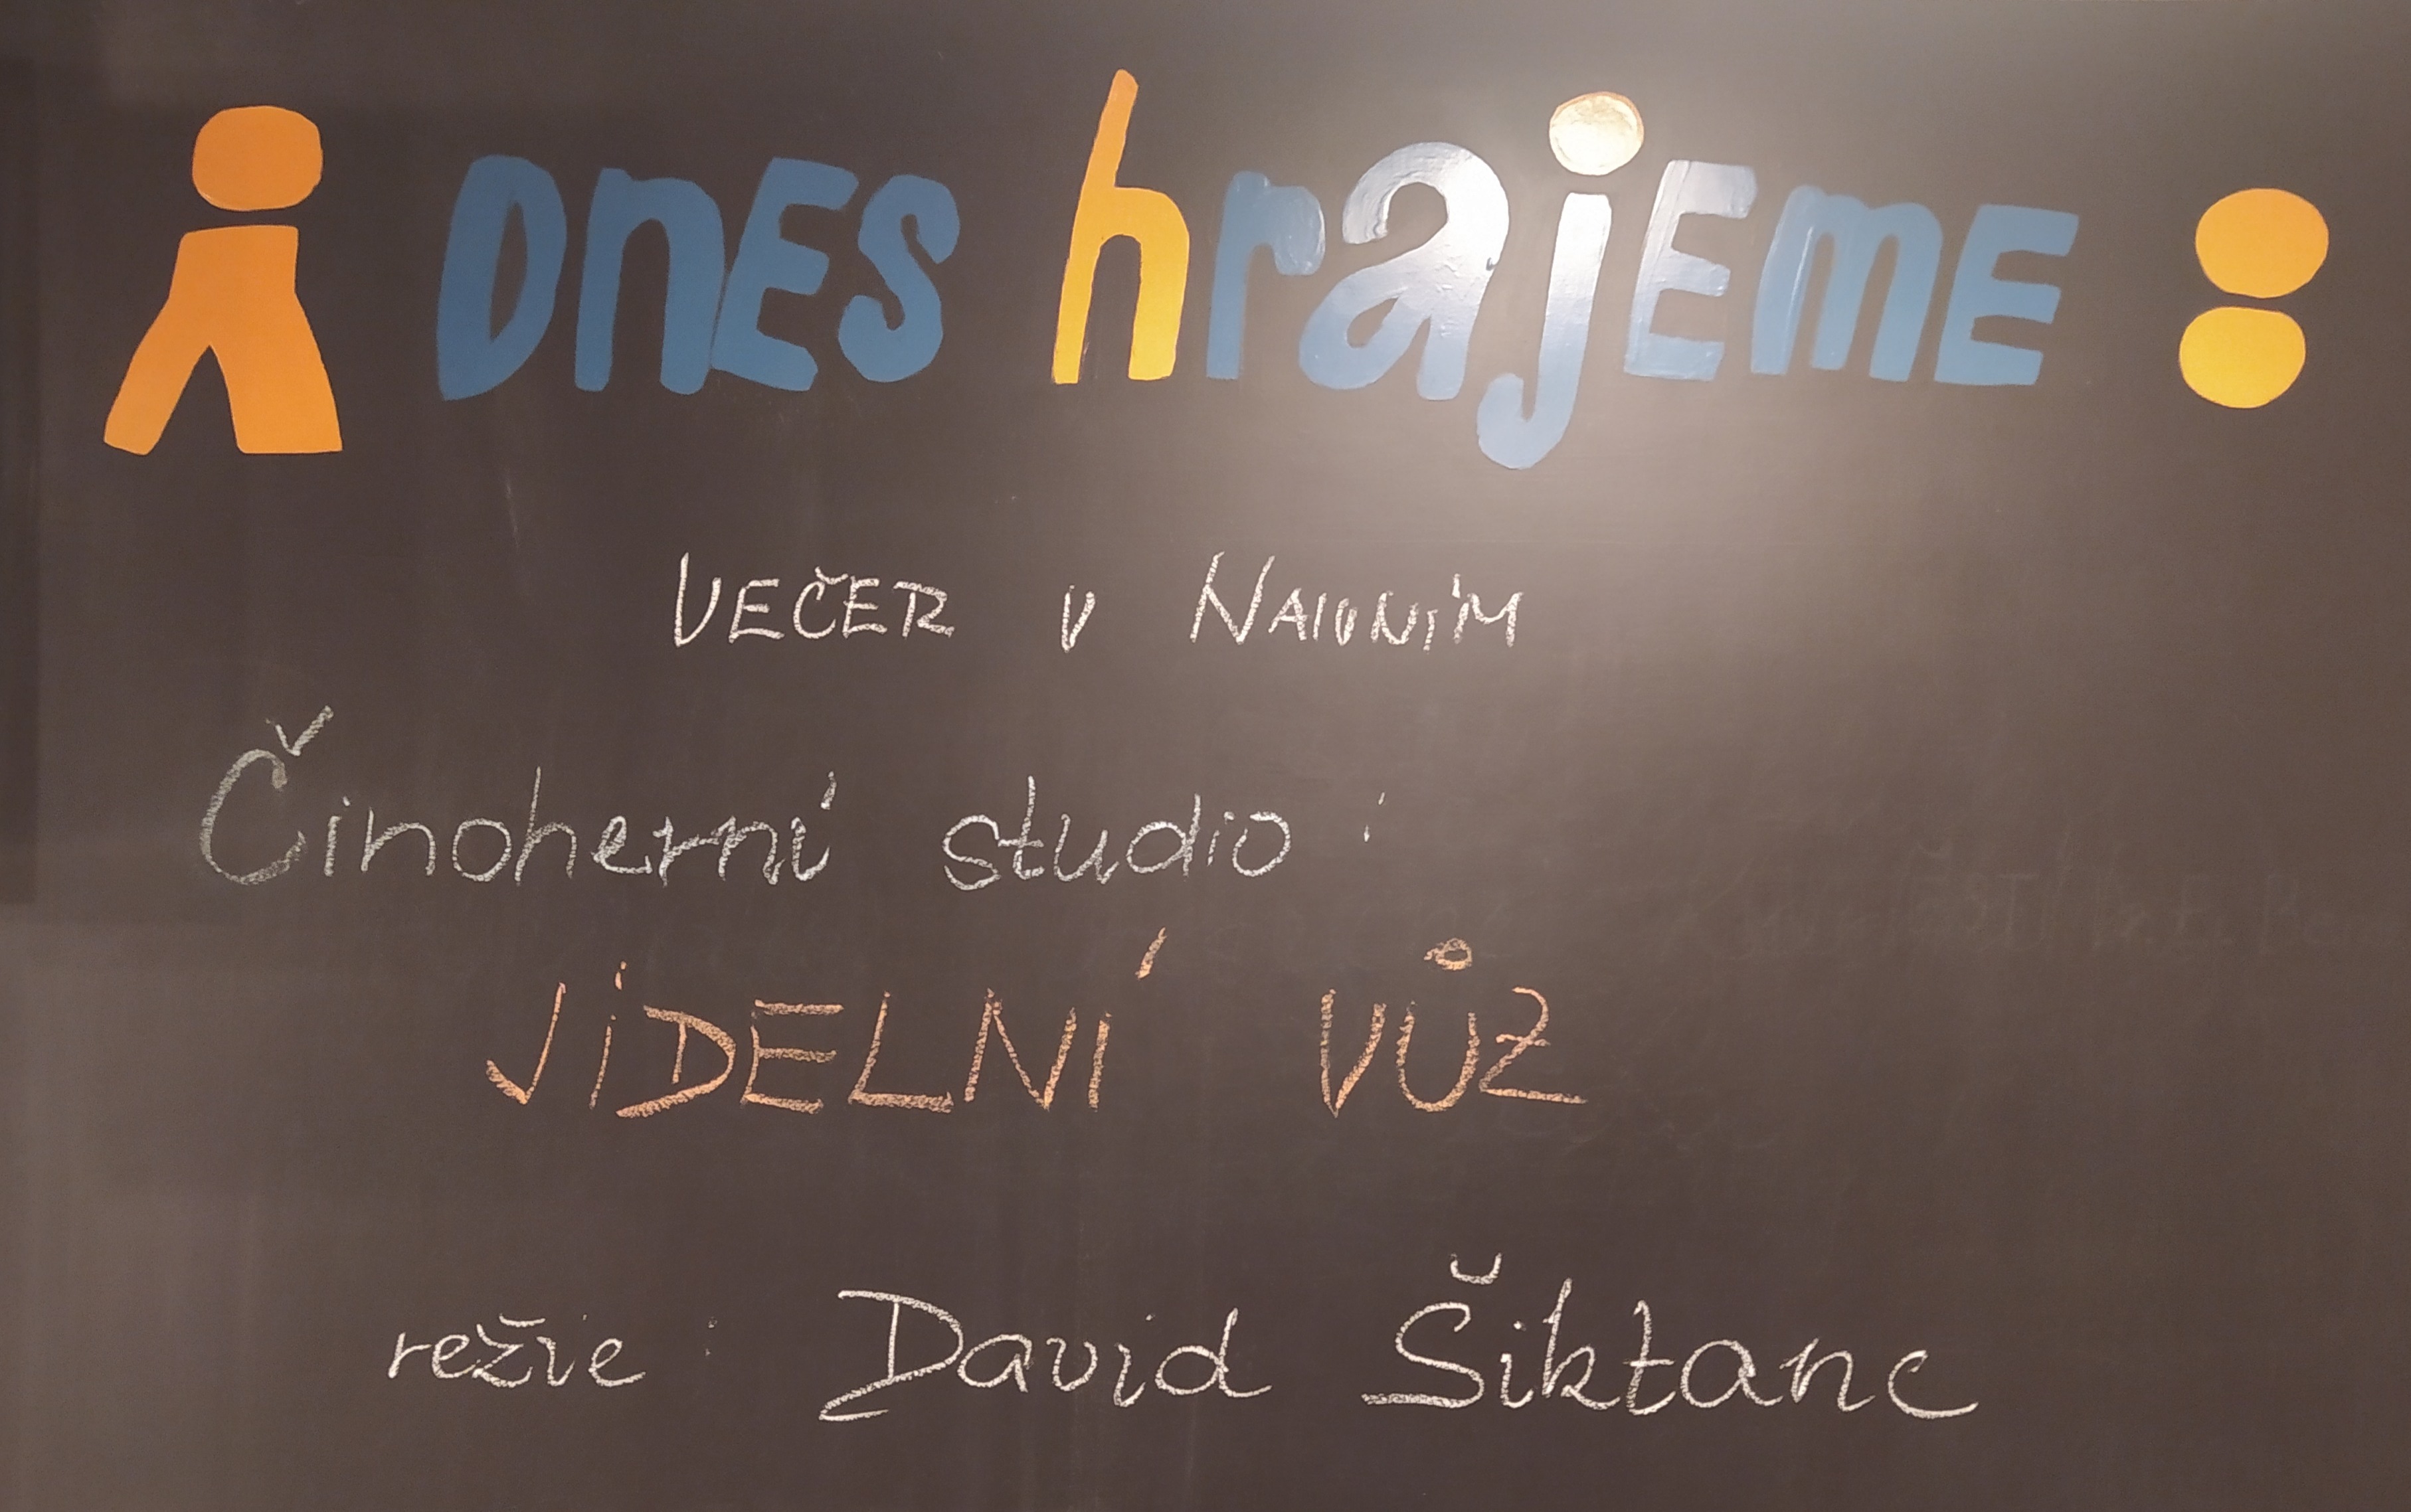 DnES hrajEmE :
VEČER V NAIVNÍM
Činoherní studio :
JÍDELNÍ VŮZ
režie : David Šiktanc